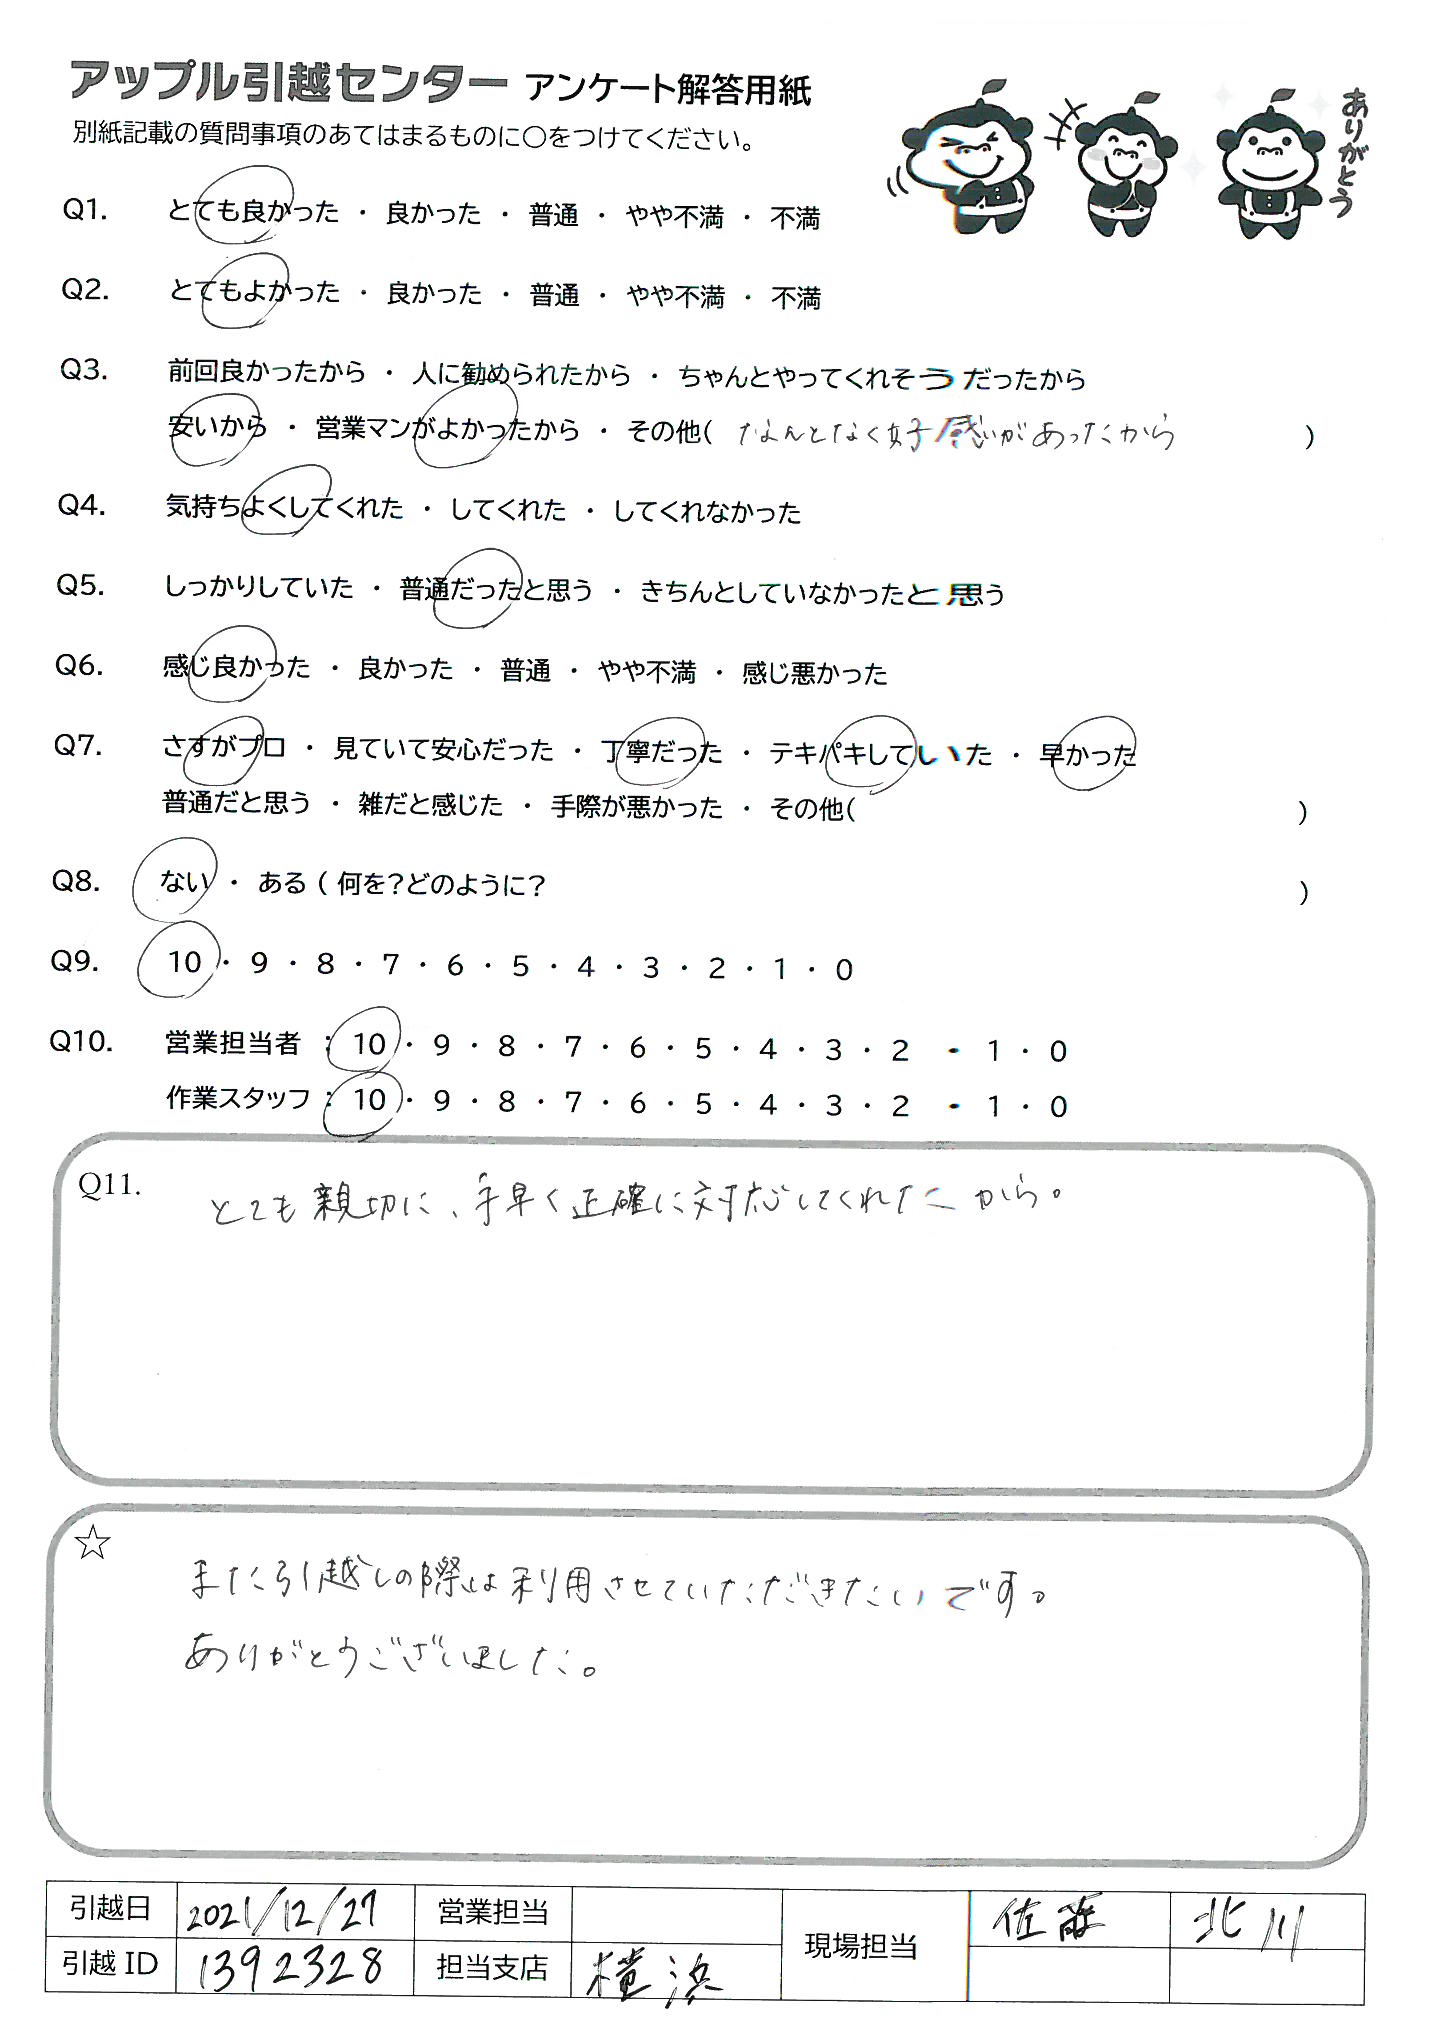 アップル引越センター アンケート解答用紙
別紙記載の質問事項のあてはまるものに〇をつけてください。
ありがとう
Q1. とても良かった ・ 良かった ・ 普通 ・ やや不満 ・ 不満
Q2. とてもよかった ・ 良かった ・ 普通 ・ やや不満 ・ 不満
Q3. 前回良かったから ・ 人に勧められたから ・ ちゃんとやってくれそうだったから
安いから ・ 営業マンがよかったから ・ その他( なんとなく好感いがあったから )
Q4. 気持ちよくしてくれた ・ してくれた ・ してくれなかった
Q5. しっかりしていた ・ 普通だったと思う ・ きちんとしていなかったと思う
Q6. 感じ良かった ・ 良かった ・ 普通 ・ やや不満 ・ 感じ悪かった
Q7. さすがプロ ・ 見ていて安心だった ・ 丁寧だった ・ テキパキしていた ・ 早かった
普通だと思う ・ 雑だと感じた ・ 手際が悪かった ・ その他( )
Q8. ない ・ ある ( 何を?どのように? )
Q9. 10 ・ 9 ・ 8 ・ 7 ・ 6 ・ 5 ・ 4 ・ 3 ・ 2 ・ 1 ・ 0
Q10. 営業担当者 : 10 ・ 9 ・ 8 ・ 7 ・ 6 ・ 5 ・ 4 ・ 3 ・ 2 ・ 1 ・ 0
作業スタッフ : 10 ・ 9 ・ 8 ・ 7 ・ 6 ・ 5 ・ 4 ・ 3 ・ 2 ・ 1 ・ 0
Q11.
とても親切に、手早く正確に対応してくれたから。
☆
また引越しの際は利用させていただきたいです。
ありがとうございました。
引越日 2021/12/27 営業担当 現場担当 佐藤 北川
引越ID 1392328 担当支店 横浜